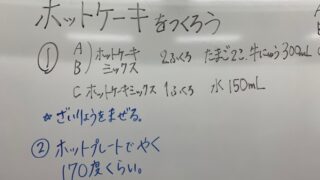 ホットケーキをつくろう
① A) ホットケーキ 2ふくろ たまご2こ、牛にゅう300mL
B) ミックス
C ホットケーキミックス 1ふくろ 水 150mL
☆ざいりょうをまぜる。
② ホットプレートでやく
170度くらい。